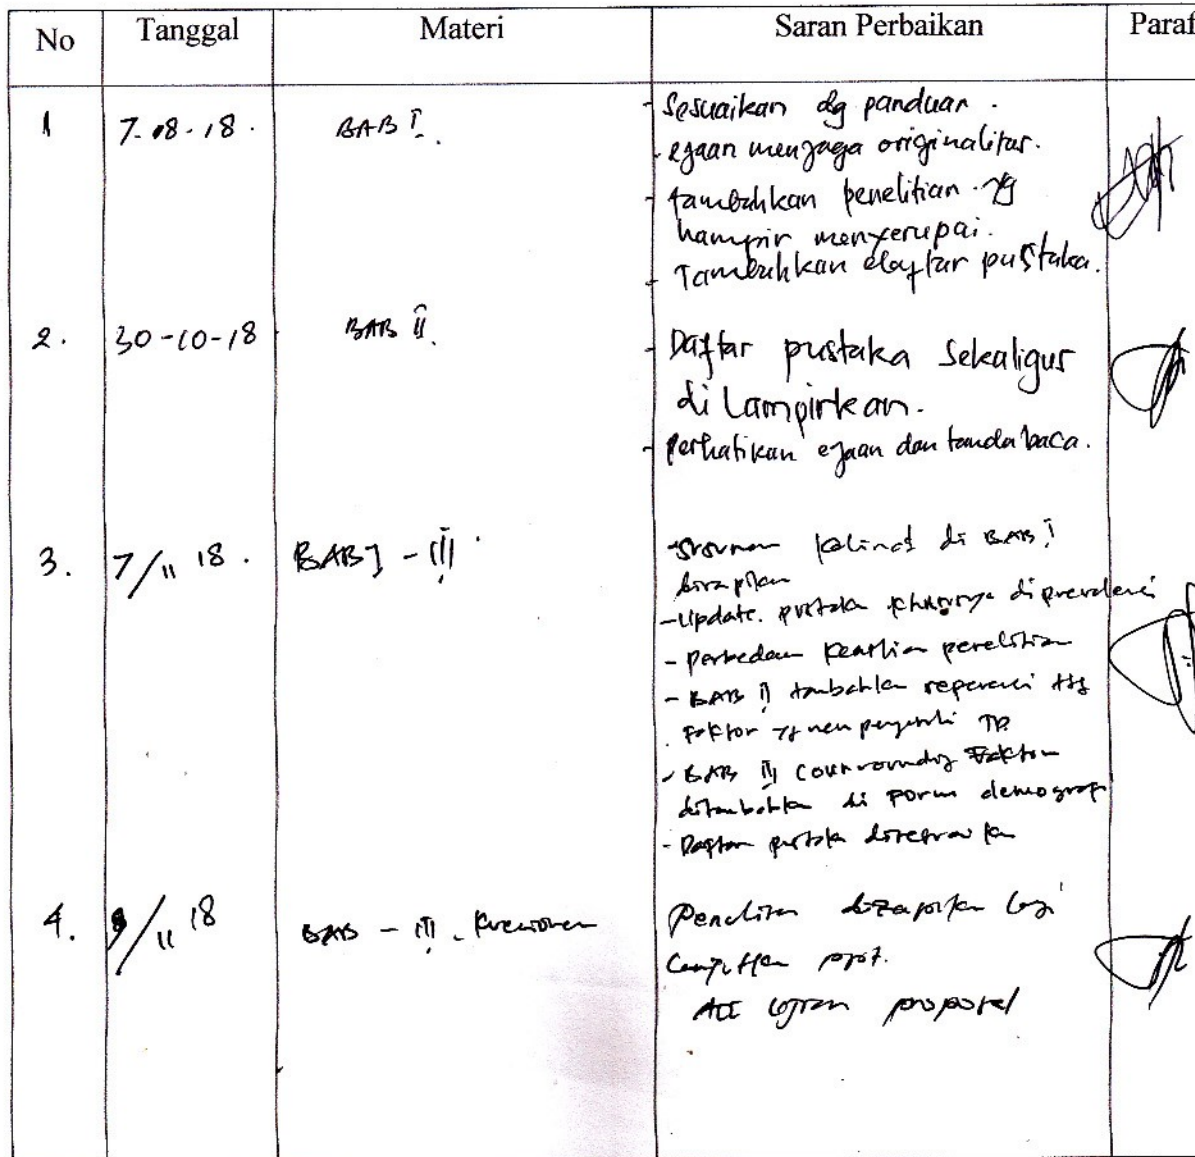 No Tanggal Materi Saran Perbaikan Paraf
1 7-08-18. BAB I. - Sesuaikan dg panduan.
- ejaan menjaga originalitas.
- tambahkan penelitian yg
hampir menyerupai.
- Tambahkan daftar pustaka.
2. 30-10-18 BAB II. - Daftar pustaka Sekaligus
di Lampirkan.
- Perhatikan ejaan dan tanda baca.
3. 7/11 18. BAB I - III - Susunan kalimat di BAB I
dirapikan
- Update. pustaka khususnya di prevalensi
- Perbedaan keaslian penelitian
- BAB II tambahkan referensi ttg
Faktor yg mempengaruhi
- BAB III Faktor
ditambahkan di Form demografi
- Daftar pustaka
4. 9/11 18 BAB - III - Kuesioner Penulisan dirapikan lagi
ACC Ujian proposal